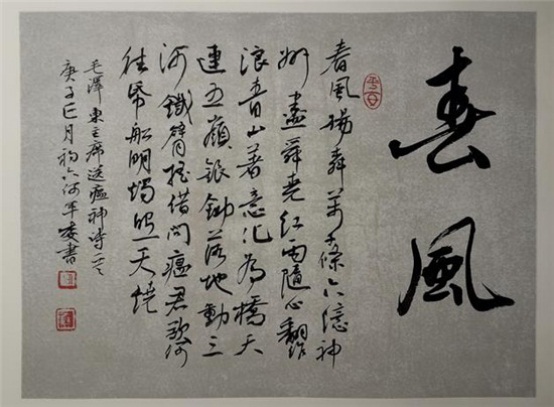 春風
春風楊萬千條六億神
州盡舜堯紅雨隨心翻作
浪青山著意化為橋天
連五嶺銀鋤落地動三
河鐵臂搖借問瘟君欲何
往帋船明燭照天燒
毛澤東主席送瘟神诗二之
庚子巳月初六軍書